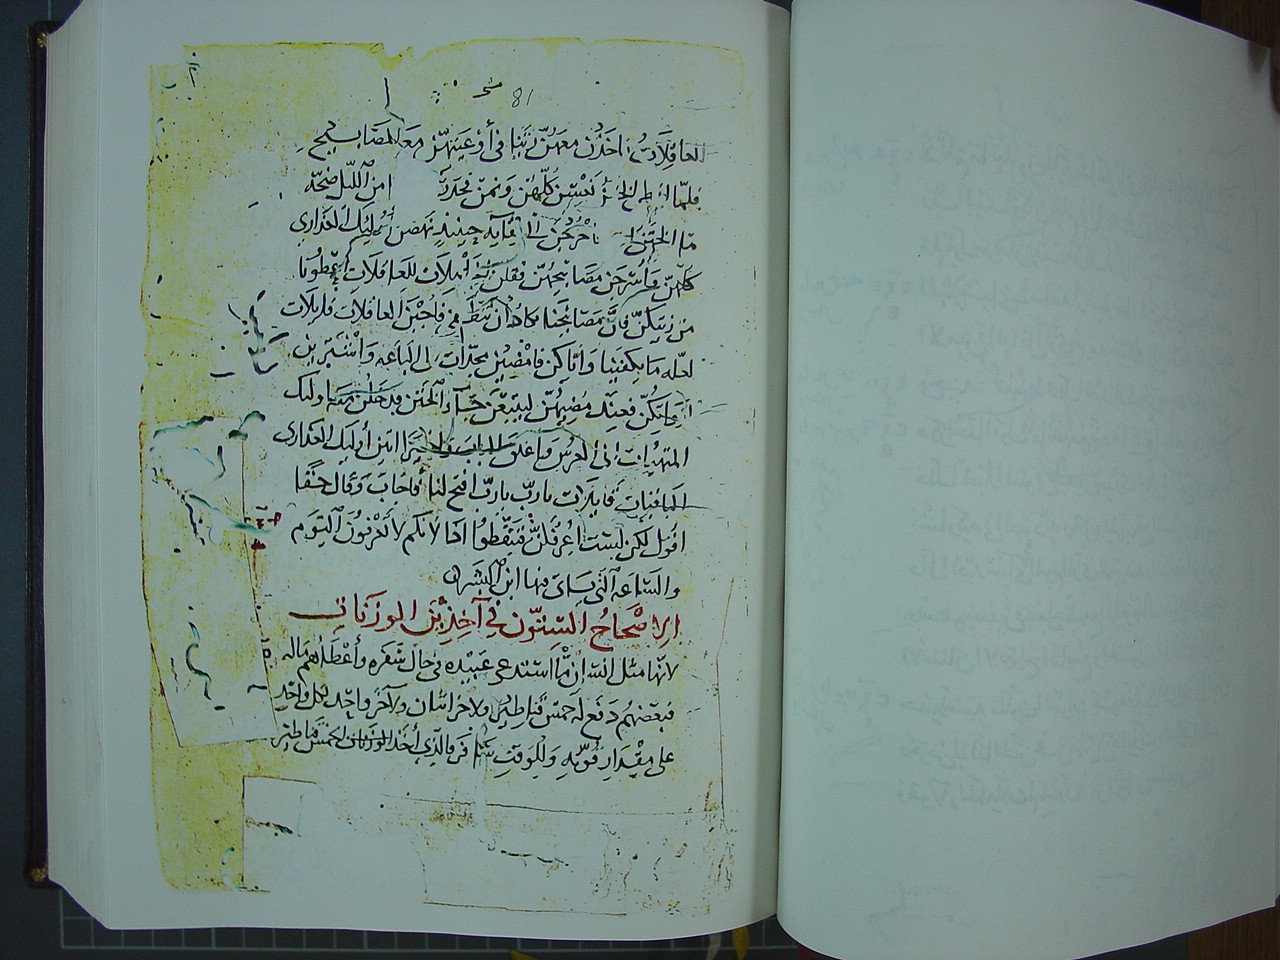 81 متى
العاقلات اخذن معهن زيتا في أوعيتهن مع المصابيح
فلما ابطا الختن نعسن كلهن ونمن فحدث من الليل ضجة
هذا الختن اخرجن الى لقايه حينيذ نهضن أوليك العذارى
كلهن وأسرجن مصابيحهن فقلن للعاقلات أعطونا
من زيتكن فان مصابيحنا كادت ان تنطفي فأجبن العاقلات قايلات
لعله ما يكفينا وأياكن فامضين بحترات الى الباعه واشترين
فعند مضيهن ليبتعن جاء الختن فدخلن معه اوليك
المتهيات الى العرس وأغلق الباب واخيرا اتين أوليك العذارى
الباقيات قايلات يارب يارب افتح لنا فأجاب وقال حقا
اقول لكن لست أعرفكن فتيقظوا اذا لانكم لا تعرفون اليوم
والساعه التي ياتي فيها ابن البشر
الاصحاح الستون في آخذين الوزنات
لانها مثل انسان لما استدعى عبيده في حال سفره وأعطاهم ماله
فبعضهم دفع له خمس قناطير ولاخر اثنان ولآخر واحد لكل واحد
على مقدار قوته وللوقت سافر فمر الذي أخذ الخمس قناطير